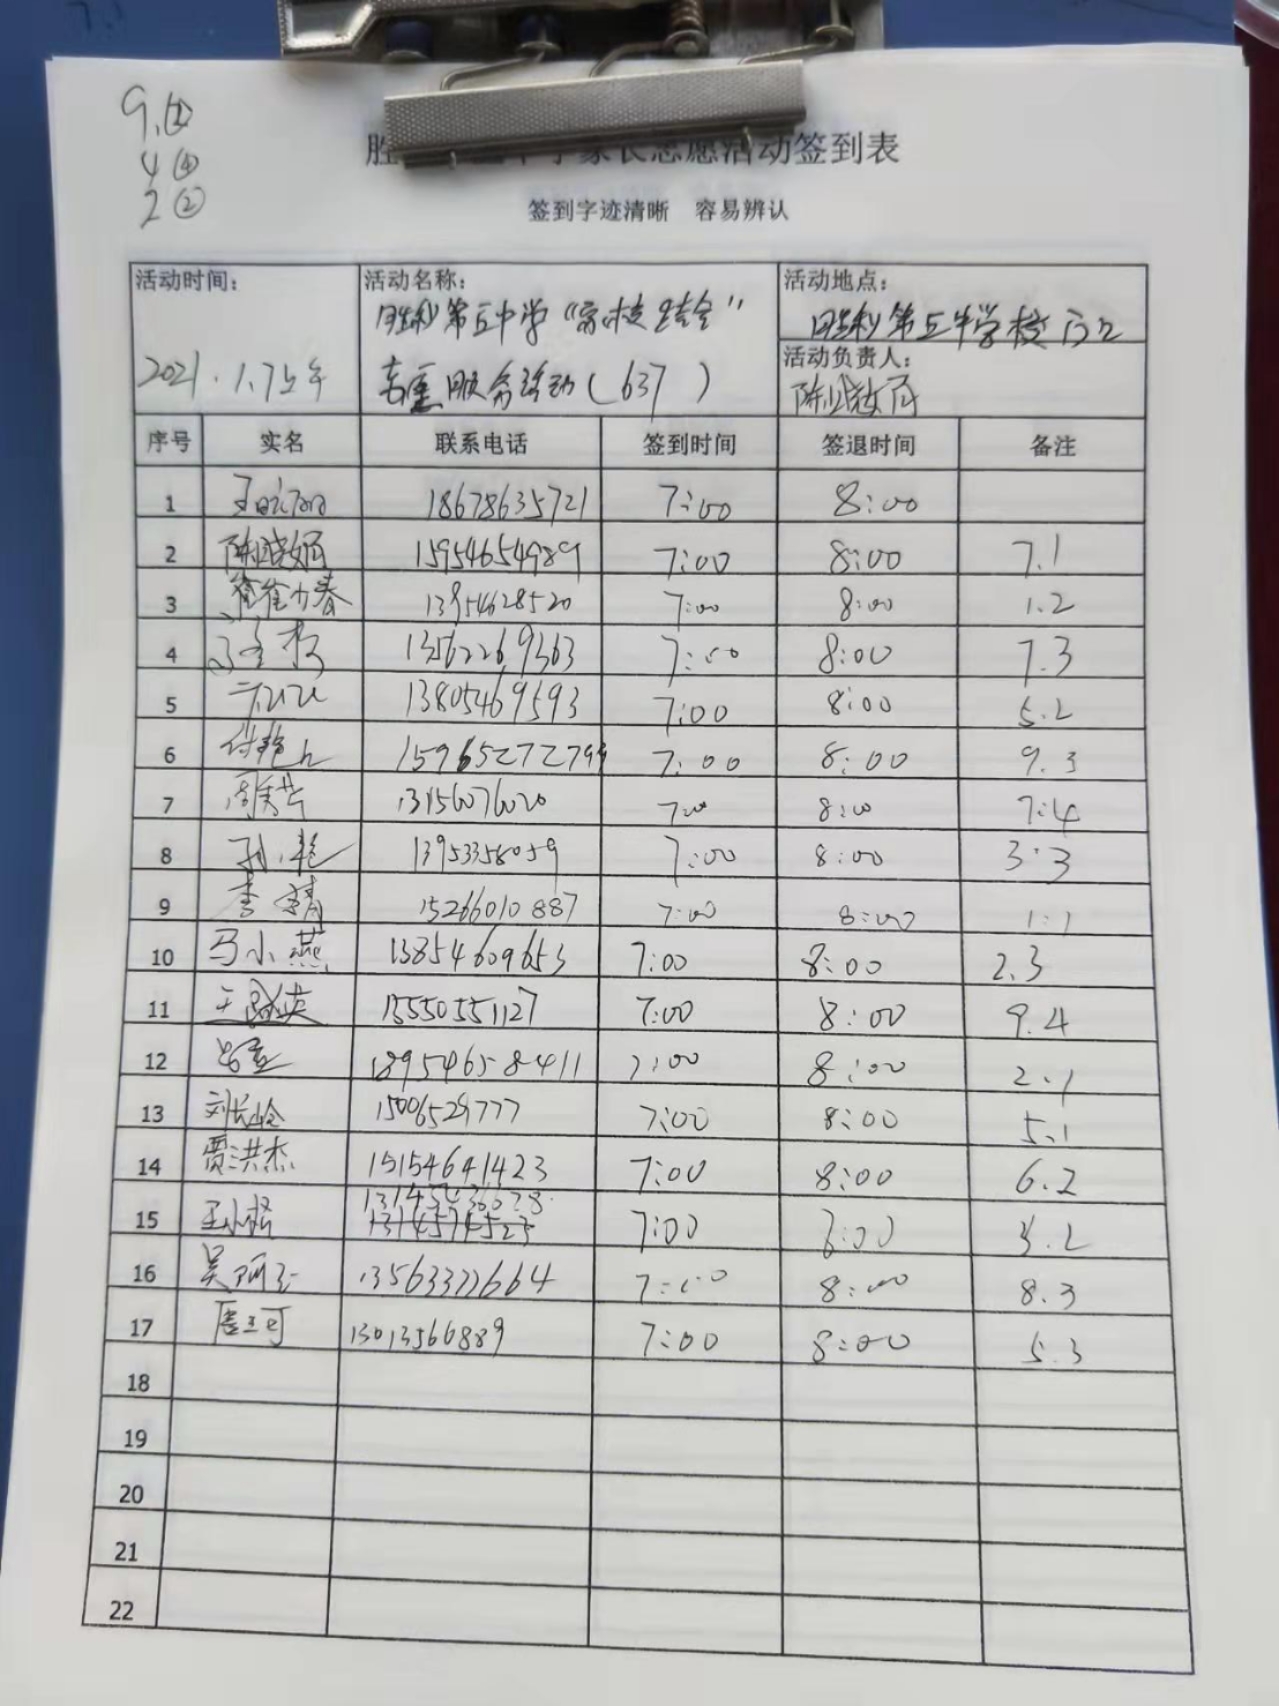 9.
4 ④
2 ②
志愿活动签到表
签到字迹清晰 容易辨认
活动时间:
2021.1.7上午
活动名称:
胜利第五中学“家校结合”
志愿服务活动(637)
活动地点:
胜利第五中学校门口
活动负责人:
序号 实名 联系电话 签到时间 签退时间 备注
1 18678635721 7:00 8:00
2 15954654989 7:00 8:00 7.1
3 13954628520 7:00 8:00 1.2
4 13562269363 7:00 8:00 7.3
5 13805469593 7:00 8:00 5.2
6 7:00 8:00 9.3
7 13156076020 7:00 8:00 7:4
8 孙艳 13953358059 7:00 8:00 3:3
9 李婧 15266010887 7:00 8:00 1:1
10 马小燕 13854609653 7:00 8:00 2.3
11 15550551127 7:00 8:00 9.4
12 18954658411 7:00 8:00 2.1
13 15006529777 7:00 8:00 5.1
14 贾洪杰 15154641423 7:00 8:00 6.2
15 7:00 8:00 3.2
16 13563377664 7:00 8:00 8.3
17 13013566889 7:00 8:00 5.3
18
19
20
21
22